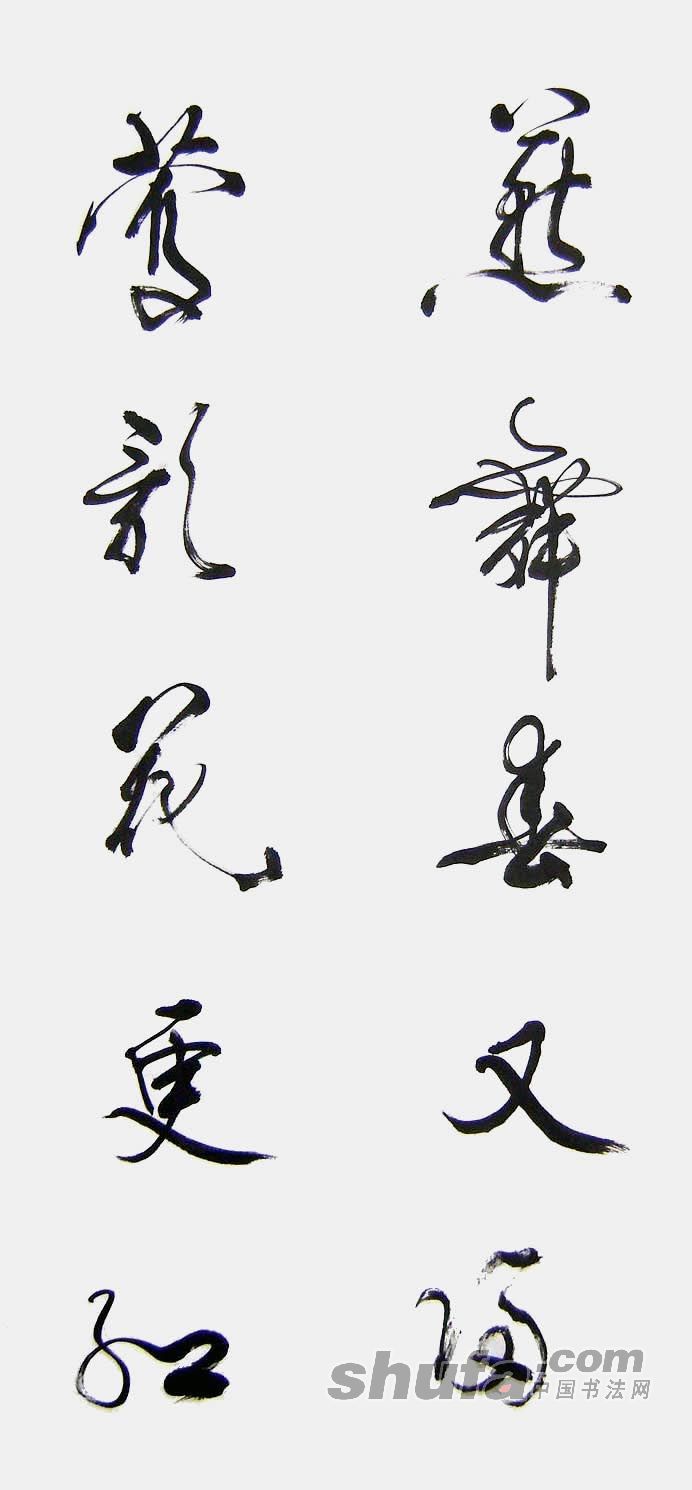 燕舞春又歸
鶯歌花更紅
shufa.com
中国书法网